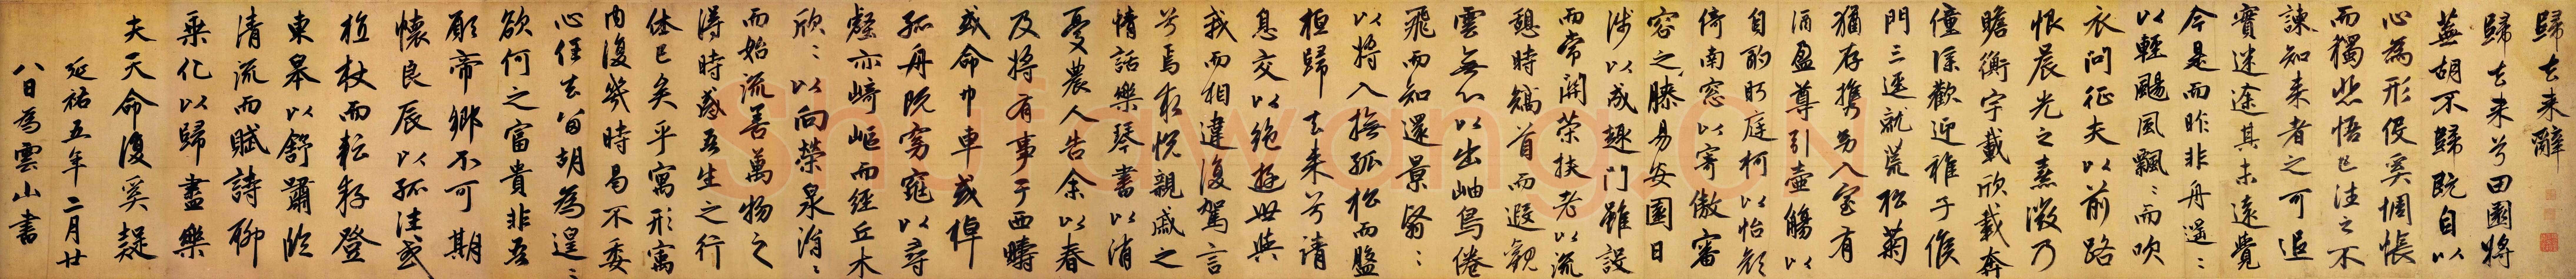 歸去来辭
歸去来兮田園將
蕪胡不歸既自以
心為形役奚惆悵
而獨悲悟已往之不
諫知来者之可追
實迷途其未遠覺
今是而昨非舟遥〻
以輕颺風飄〻而吹
衣問征夫以前路
恨晨光之熹微乃
瞻衡宇載欣載奔
僮僕歡迎稚子候
門三逕就荒松菊
猶存攜幼入室有
酒盈尊引壺觴以
自酌眄庭柯以怡顏
倚南窓以寄傲審
容之膝易安園日
涉以成趣門雖設
而常關策扶老以流
憩時矯首而遐觀
雲無心以出岫鳥倦
飛而知還景翳〻
以將入撫孤松而盤
桓歸去来兮請
息交以絶遊世與
我而相違復駕言
兮焉求悦親戚之
情話樂琴書以消
憂農人告余以春
及將有事于西疇
或命巾車或棹
孤舟既窈窕以尋
壑亦崎嶇而經丘木
欣〻以向榮泉涓〻
而始流善萬物之
得時感吾生之行
休已矣乎寓形寓
内復幾時曷不委
心任去留胡為遑〻
欲何之富貴非吾
願帝鄉不可期
懷良辰以孤往或
植杖而耘耔登
東皋以舒嘯臨
清流而賦詩聊
乘化以歸盡樂
夫天命復奚疑
延祐五年二月廿
八日為雲山書
Shufawang.CN